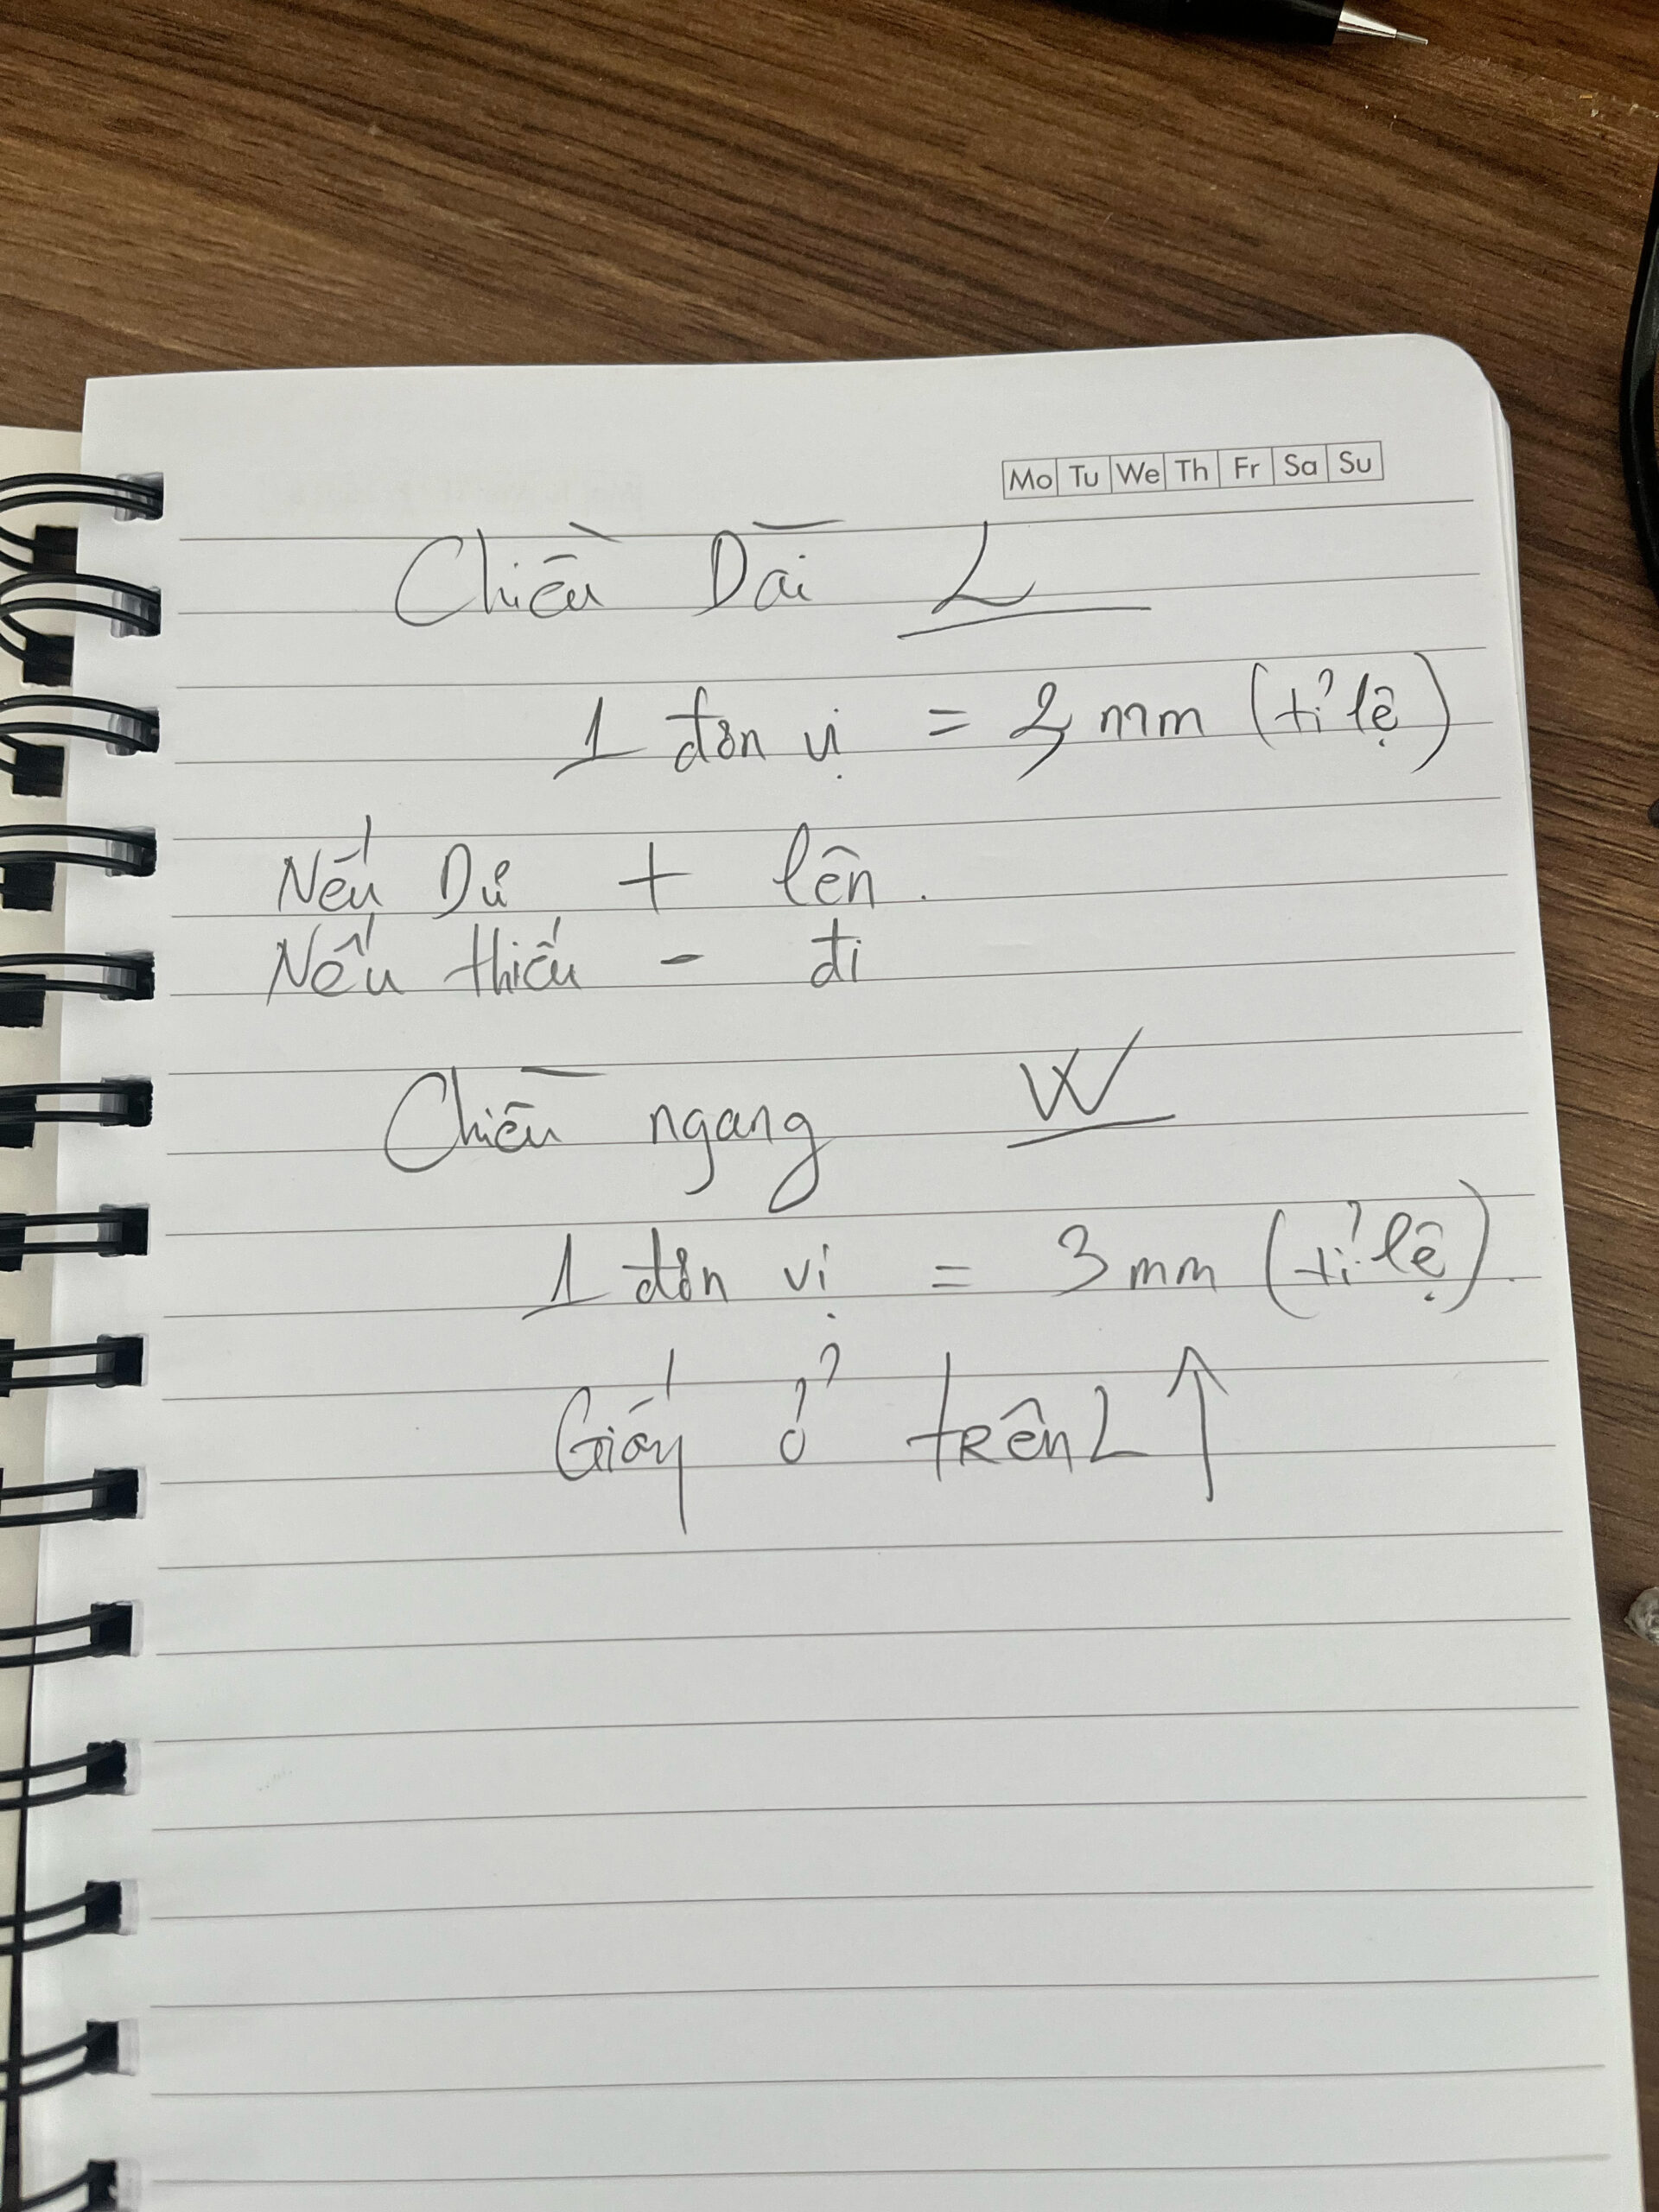 Mo Tu We Th Fr Sa Su
Chiều Dài L
1 đơn vị = 2 mm (tỉ lệ)
Nếu Dư + lên.
Nếu thiếu - đi
Chiều ngang W
1 đơn vị = 3 mm (tỉ lệ).
Giấy ở trên L ↑